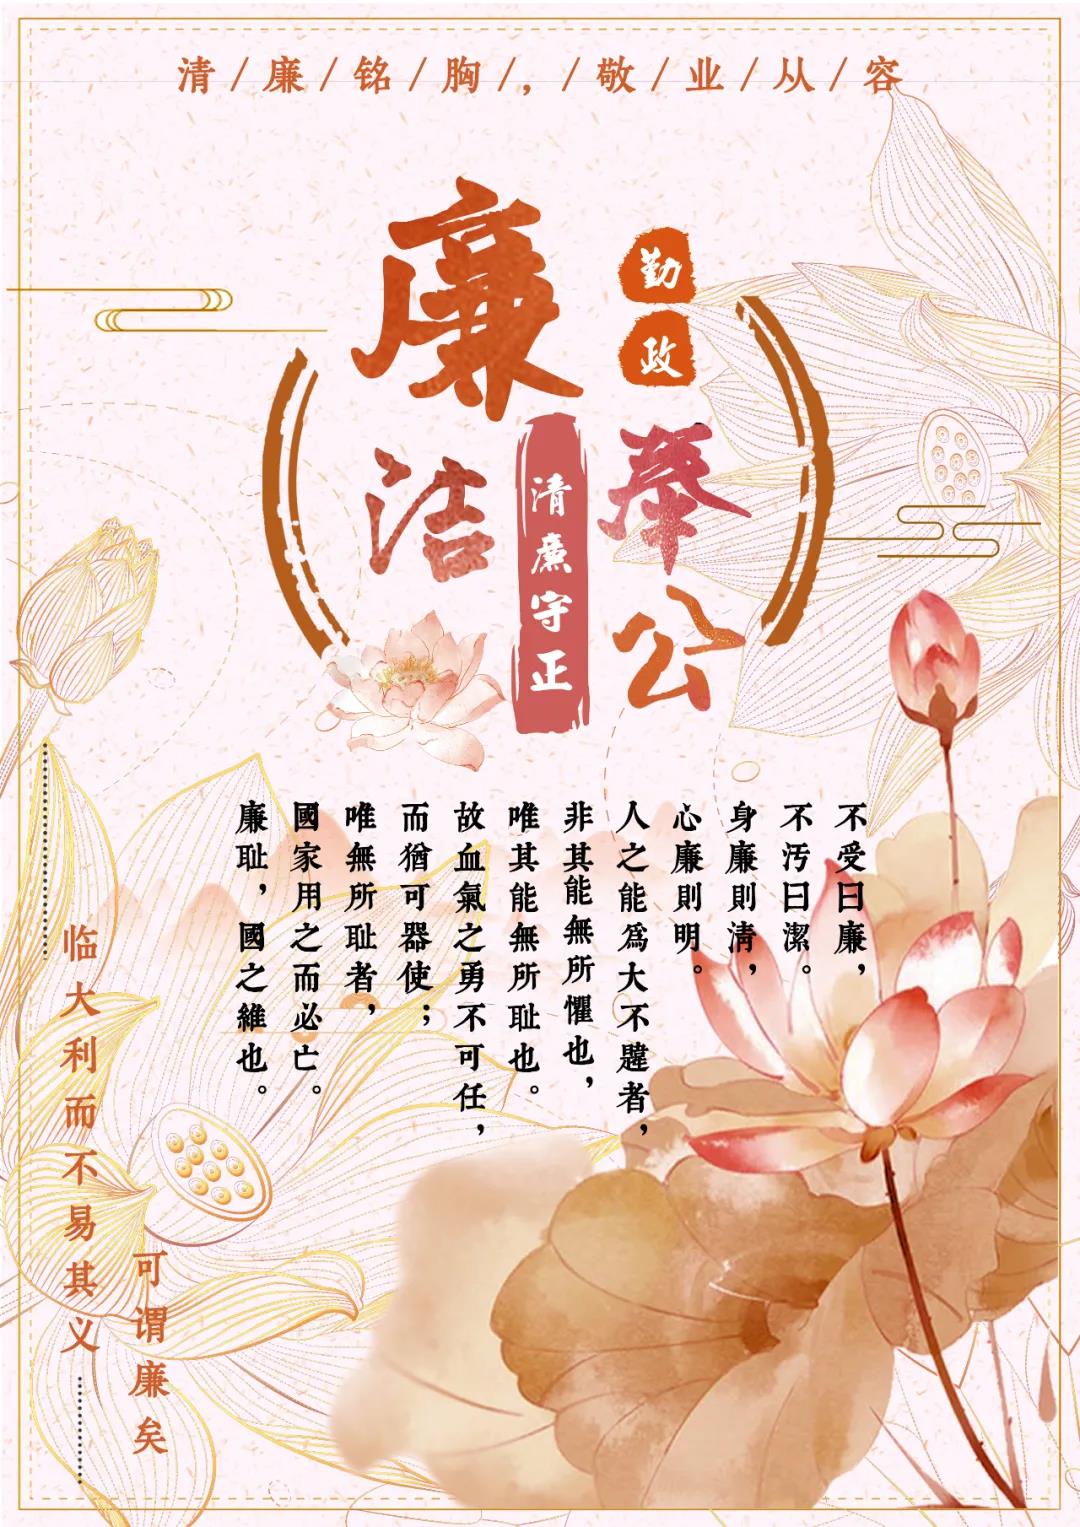 清/廉/铭/胸/,/敬/业/从/容
廉洁
清廉守正
勤政
奉公
不受曰廉，
不汚曰潔。
身廉則清，
心廉則明。
人之能爲大不韙者，
非其能無所懼也，
唯其能無所耻也。
故血氣之勇不可任，
而猶可器使；
唯無所耻者，
國家用之而必亡。
廉耻，國之維也。
临大利而不易其义
可谓廉矣